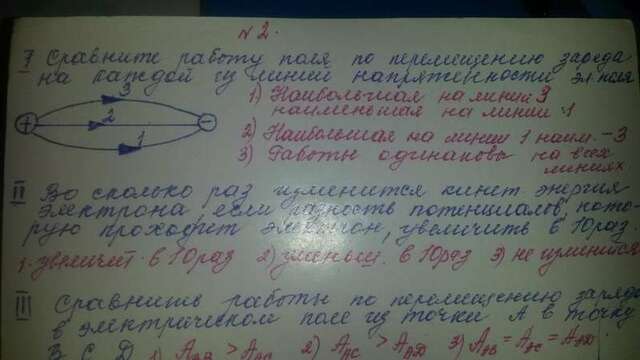 № 2.
I Сравните работу поля по перемещению заряда
на каждой из линий напряженности эл. поля
3
+ 2 -
1
1) Наибольшая на линии 3
наименьшая на линии 1
2) Наибольшая на линии 1 наим. - 3
3) Работы одинаковы на всех
линиях
II Во сколько раз изменится кинет. энергия
электрона, если разность потенциалов, кото-
рую проходит электрон, увеличить в 10 раз.
1. увеличит. в 10 раз 2) уменьш. в 10 раз 3) не изменится
III Сравнить работы по перемещению заряда
в электрическом поле из точки А в точку
В С Д 1) 2) 3)